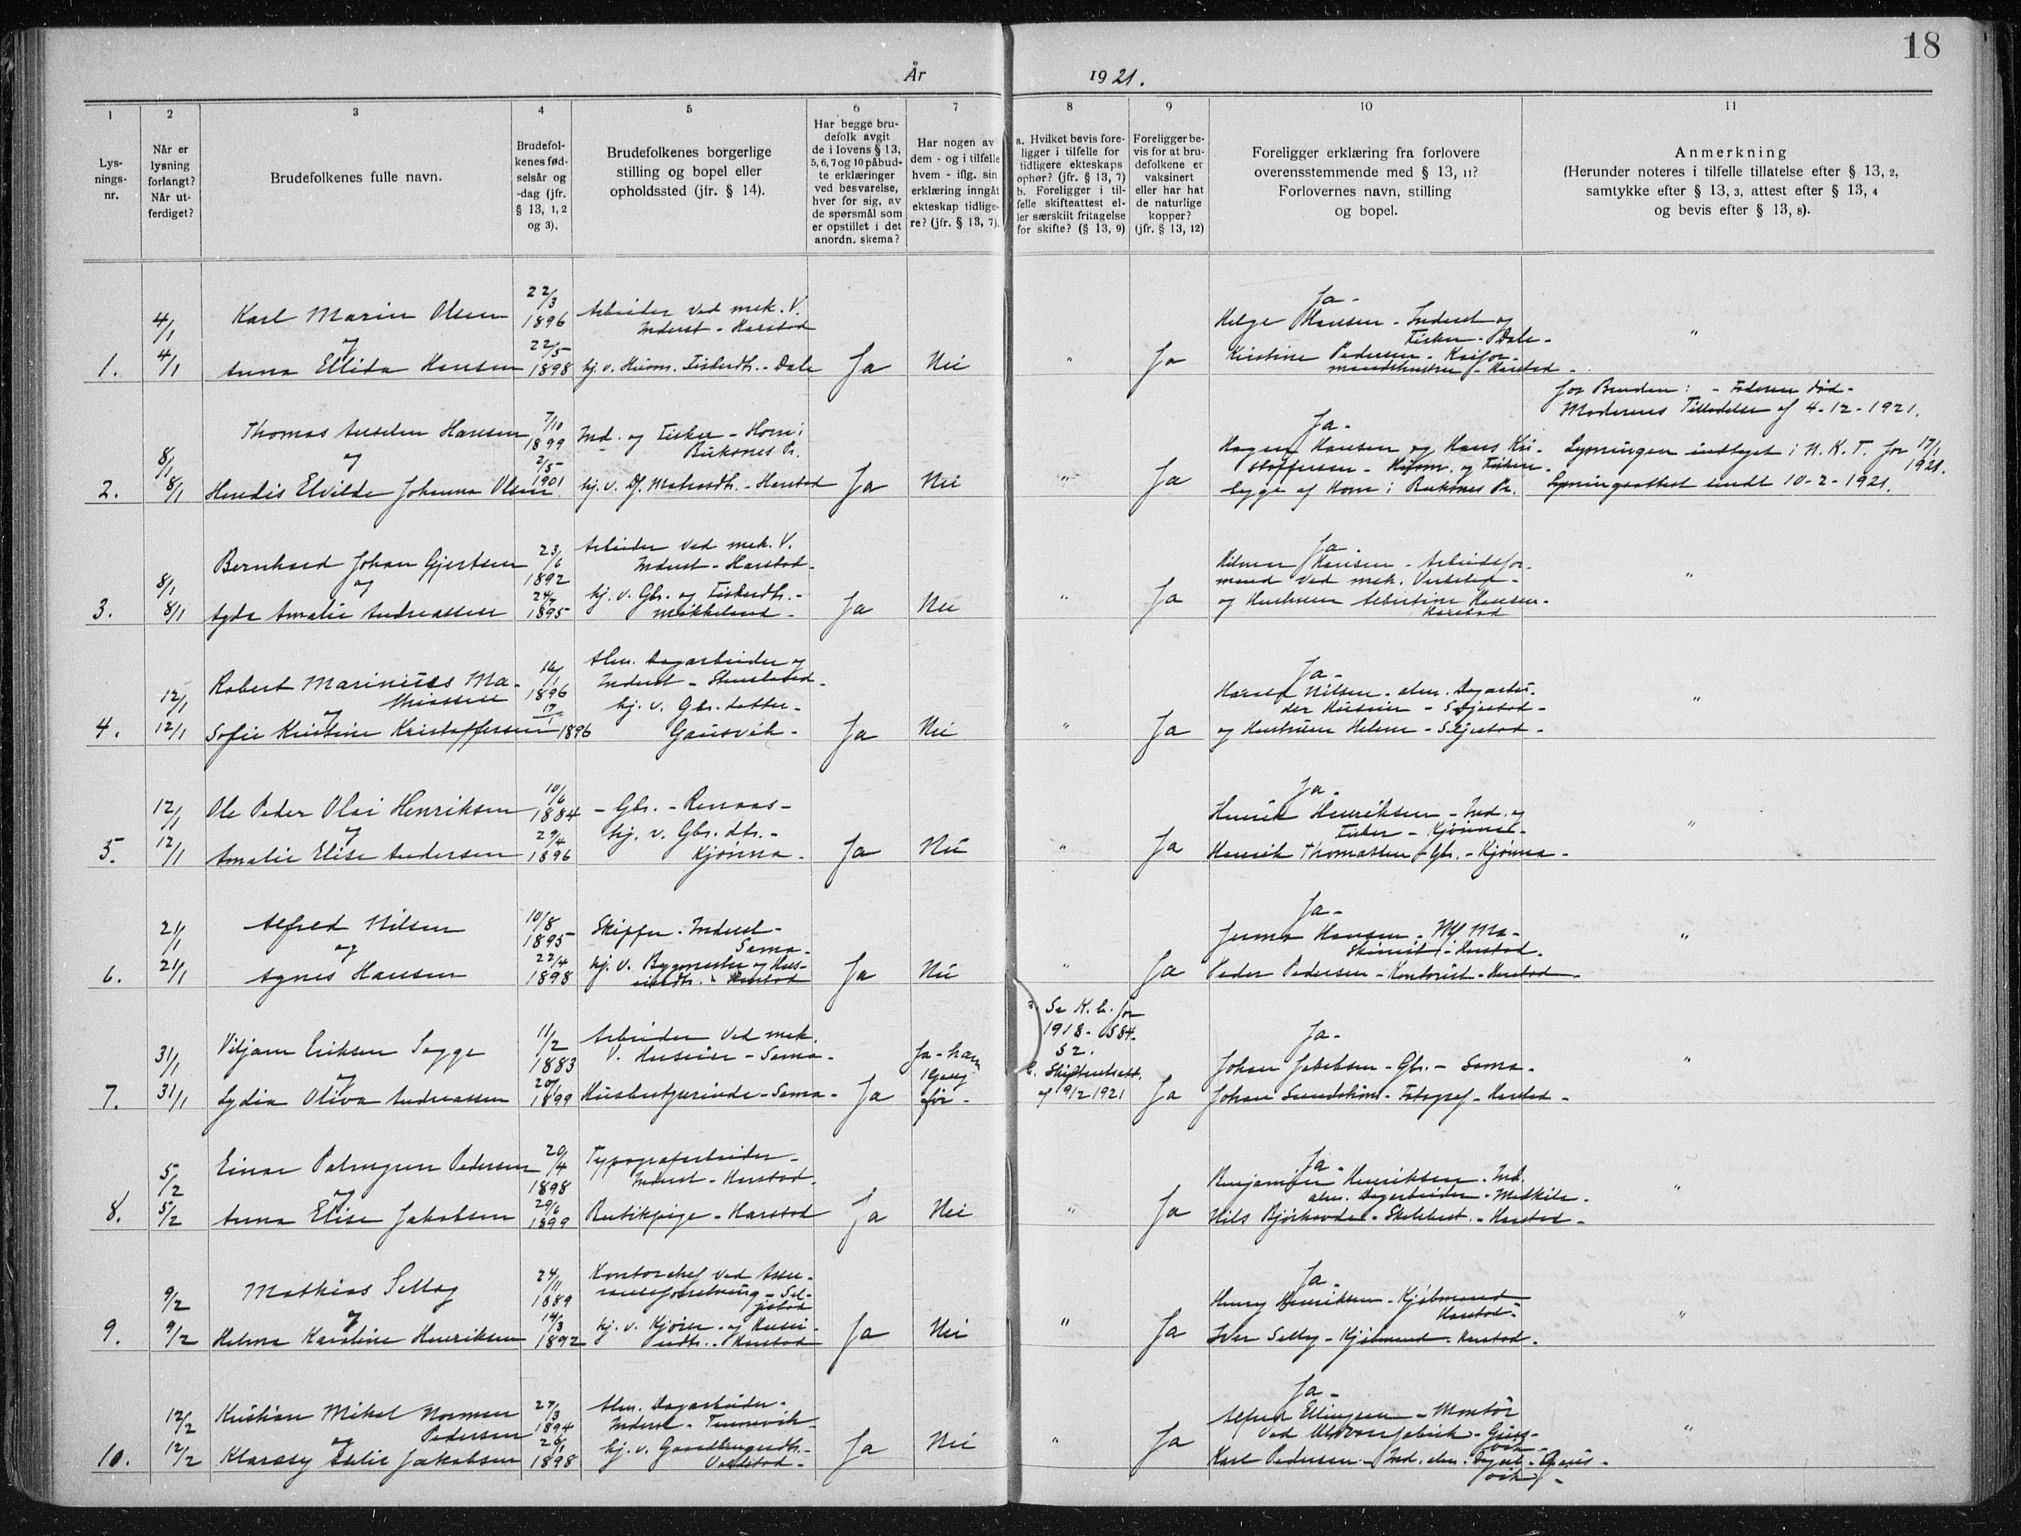 18
År 1921.
1 2 3 4 5 6 7 8 9 10 11
Lys-
nings-
nr.
Når er
lysning
forlangt?
Når ut-
ferdiget?
Brudefolkenes fulle navn.
Brudefol-
kenes fød-
selsår og
-dag (jfr.
§ 13, 1, 2
og 3).
Brudefolkenes borgerlige
stilling og bopel eller
opholdssted (jfr. § 14).
Har begge bru-
defolk avgit
de i lovens § 13,
5, 6, 7 og 10 påbud-
te erklæringer
ved besvarelse,
hver for sig, av
de spørsmål som
er opstillet i det
anordn. skema?
Har nogen av
dem - og i tilfelle
hvem - iflg. sin
erklæring inngåt
ekteskap tidlige-
re? (jfr. § 13, 7).
a. Hvilket bevis fore-
ligger i tilfelle for
tidligere ekteskaps
ophør? (jfr. § 13, 7)
b. Foreligger i til-
felle skifteattest el-
ler særskilt fritagelse
for skifte? (§ 13, 9)
Foreligger be-
vis for at bru-
defolkene er
vaksinert
eller har hat
de naturlige
kopper?
(jfr. § 13, 12)
Foreligger erklæring fra forlovere
overensstemmende med § 13, 11?
Forlovernes navn, stilling
og bopel.
Anmerkning
(Herunder noteres i tilfelle tillatelse efter § 13, 2,
samtykke efter § 13, 3, attest efter § 13, 4
og bevis efter § 13, 8).
1.
4/1
4/1
Karl Marin Olsen
og
Anna Ellida Hansen
22/3
1896
22/5
1898
Arbeider ved mek. V.
Inderst - Harstad
hj. v. Husm. Fiskerdtr. - Dale
Ja
Nei
"
Ja
Ja -
Helge Hansen - Inderst og
Fisker - Dale -
Kristine Pedersen - Kaifor-
mandshustru - Harstad -
"
2.
8/1
8/1
Thomas Anselm Hansen
og
Herdis Elvilde Johanna Olsen
7/10
1899
2/5
1901
Ind. og Fisker - Horn i
Buksnes Pr.
hj. v. Df. Matrosdtr. - Harstad
Ja
Nei
"
Ja
Ja -
Hagen Hansen og Hans Kri-
stoffersen - Husm. og Fiskere -
begge af Horn i Buksnes Pr.
for Bruden: - Faderen død -
Moderens Tilladelse af 4-12-1921.
Lysningen indtaget i N. K. T. for 17/1
1921.
Lysningsattest sendt 10-2-1921.
3.
8/1
8/1
Bernhard Johan Gjertsen
og
Agda Amalie Andreassen
23/6
1892
24/7
1895
Arbeider ved mek. V.
Inderst - Harstad -
hj. v. Gbr. og Fiskerdtr. -
Mækkeland -
Ja
Nei
"
Ja
Ja
Hilmar Hansen - Arbeidsfor-
mand ved mek. Verksted -
og Hustruen Albertine Hansen -
Harstad
"
4.
12/1
12/1
Robert Marinius Ma-
thiassen
og
Sofie Kristine Kristoffersen
16/1
1896
17/1
1896
Alm. Dagarbeider og
Inderst -
hj. v. Gbr. datter -
Gausvik -
Ja
Nei
"
Ja
Ja -
Harald Nilsen - alm. Dagarbei-
der Huseier - Seljestad -
og Hustruen Helene - Seljestad -
"
5.
12/1
12/1
Ole Peder Olai Henriksen
og
Amalie Elise Andersen
10/6
1884
29/4
1896
- Gbr. - Renaas -
hj. v. Gbr. dtr. -
Kjønna -
Ja
Nei
"
Ja
Ja -
Henrik Henriksen - Ind. og
Fisker - Kjønna -
Henrik Thomassen - Gbr. - Kjønna -
"
6.
21/1
21/1
Alfred Nilsen
og
Agnes Hansen
10/8
1895
22/4
1898
Skipper - Inderst -
Sama -
hj. v. Bygmester og Hus-
eierdtr. - Harstad
Ja
Nei
"
Ja
Ja -
Hansen - Ma-
skinist - Harstad -
Peder Pedersen - Kontorist - Harstad -
"
7.
31/1
31/1
Viljam Eriksen Sagge
og
Lydia Oliva Andreassen
11/2
1883
20/1
1899
Arbeider ved mek.
V. Huseier - Sama -
Husbestyrerinde - Sama -
Ja
Ja - han
1 Gang
før -
a. Se K. b. for
1918 - S 84 -
52.
b. Skifteattest
af 9/2 1921
Ja
Ja -
Johan Jakobsen - Gbr. - Sama -
Johan Sundstrøm - Fotograf - Harstad -
"
8.
5/2
5/2
Einar Palmgren Pedersen
og
Anna Elise Jakobsen
20/4
1898
29/6
1899
Typografarbeider -
Inderst - Harstad.
Butikpige - Harstad
Ja
Nei
"
Ja
Ja -
Benjamin Henriksen - Ind.
alm. Dagarbeider - Medkila -
Nils Bjørkevde - Skolebest. - Harstad -
"
9.
9/2
9/2
Mathias Selbog
og
Helma Karoline Henriksen
24/11
1889
14/3
1892
Kontorchef ved Assu-
ranceforetning - Sel-
jestad
hj. v. Kjøbm. og Husei-
erdtr. - Harstad
Ja
Nei
"
Ja
Ja -
Henry Henriksen - Kjøbmand
Harstad -
Iver Selbog - Kjøbmand - Harstad -
"
10.
12/2
12/2
Kristian Mikal Norman
Pedersen
og
Klaraey Julie Jakobsen
27/3
1894
26/1
1898
Alm. Dagarbeider -
Inderst -
hj. v. Gaardbrugerdtr. -
Ja
Nei
"
Ja
Ja -
Alfred Ellingsen - Montør
ved Uldvarefabrik - Gaus-
vik -
Karl Pedersen - Ind. alm. Dagarb. - Gaus-
vik -
"